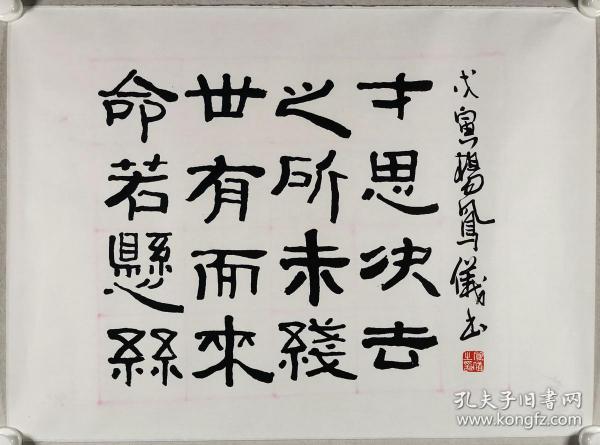 命世之才
若有所思
懸而未決
絲來綫去
戊寅楊鳳儀书
孔夫子旧书网
www.kongfz.com